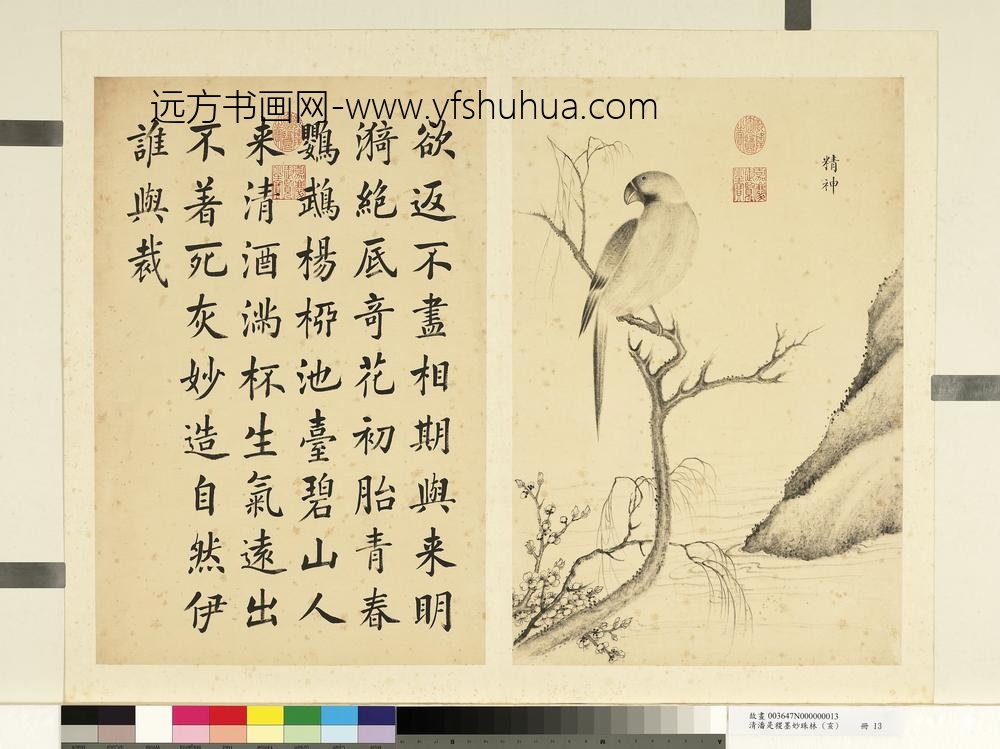 远方书画网-www.yfshuhua.com
精神
欲返不盡相期與来明
漪絶底奇花初胎青春
鸚鵡楊桺池臺碧山人
来清酒滿杯生氣遠出
不著死灰妙造自然伊
誰與裁
故畫 003647N000000013
清潘是稷墨妙珠林（亥） 冊 13